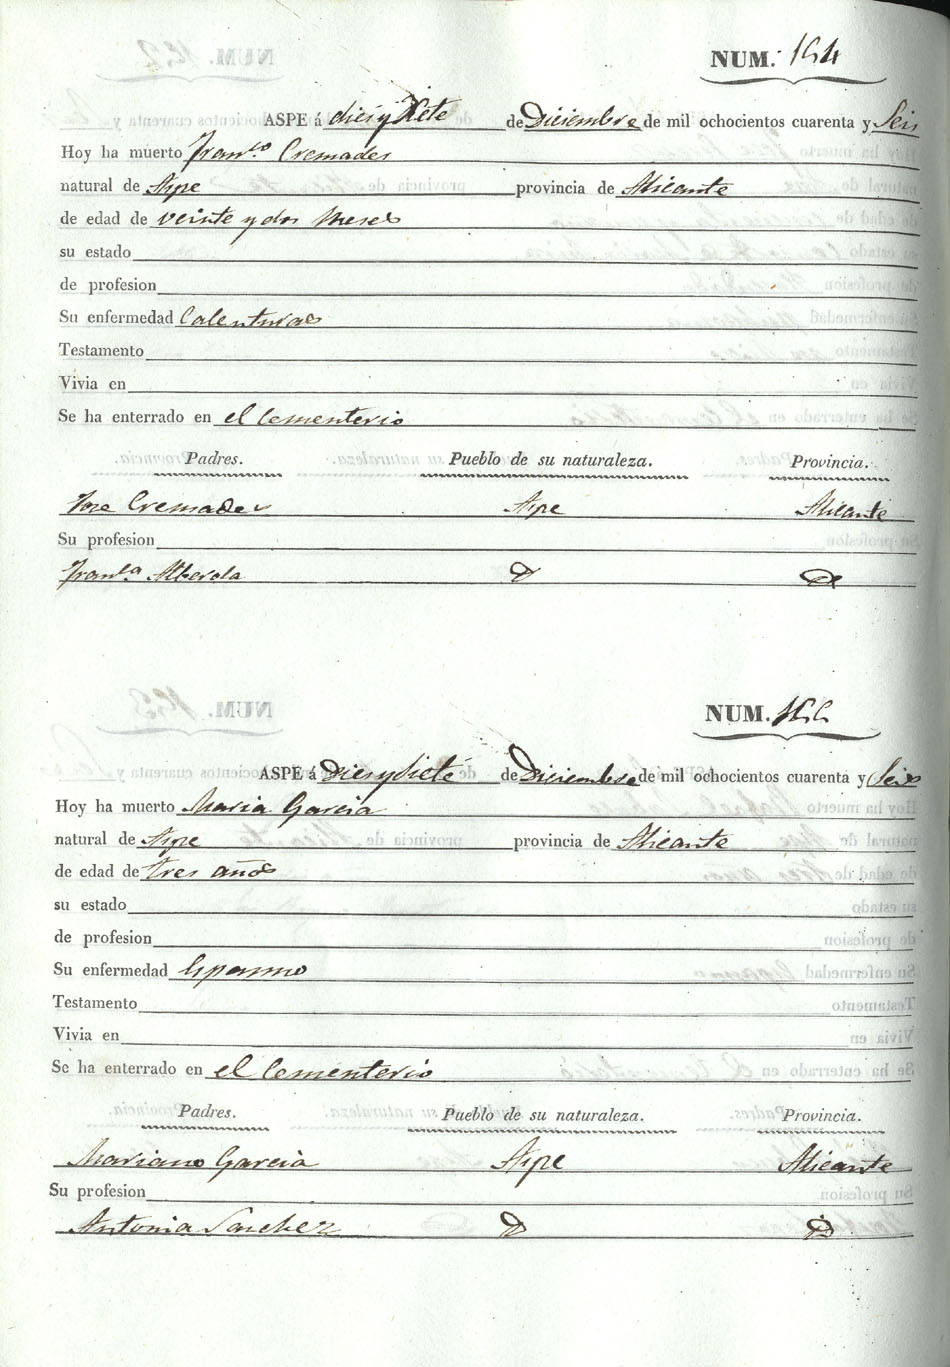 NUM. 154
ASPE á diesy Siete de Diciembre de mil ochocientos cuarenta y Seis
Hoy ha muerto Fran.co Cremades
natural de Aspe provincia de Alicante
de edad de veinte y dos meses
su estado
de profesion
Su enfermedad Calenturas
Testamento
Vivia en
Se ha enterrado en el Cementerio
Padres. Pueblo de su naturaleza. Provincia.
Jose Cremades Aspe Alicante
Su profesion
Fran.ca Alberola D D
NUM. 155
ASPE á Diesysiete de Diciembre de mil ochocientos cuarenta y Seis
Hoy ha muerto Maria Garcia
natural de Aspe provincia de Alicante
de edad de tres años
su estado
de profesion
Su enfermedad Espasmo
Testamento
Vivia en
Se ha enterrado en el Cementerio
Padres. Pueblo de su naturaleza. Provincia.
Mariano Garcia Aspe Alicante
Su profesion
Antonia Sanchez D D